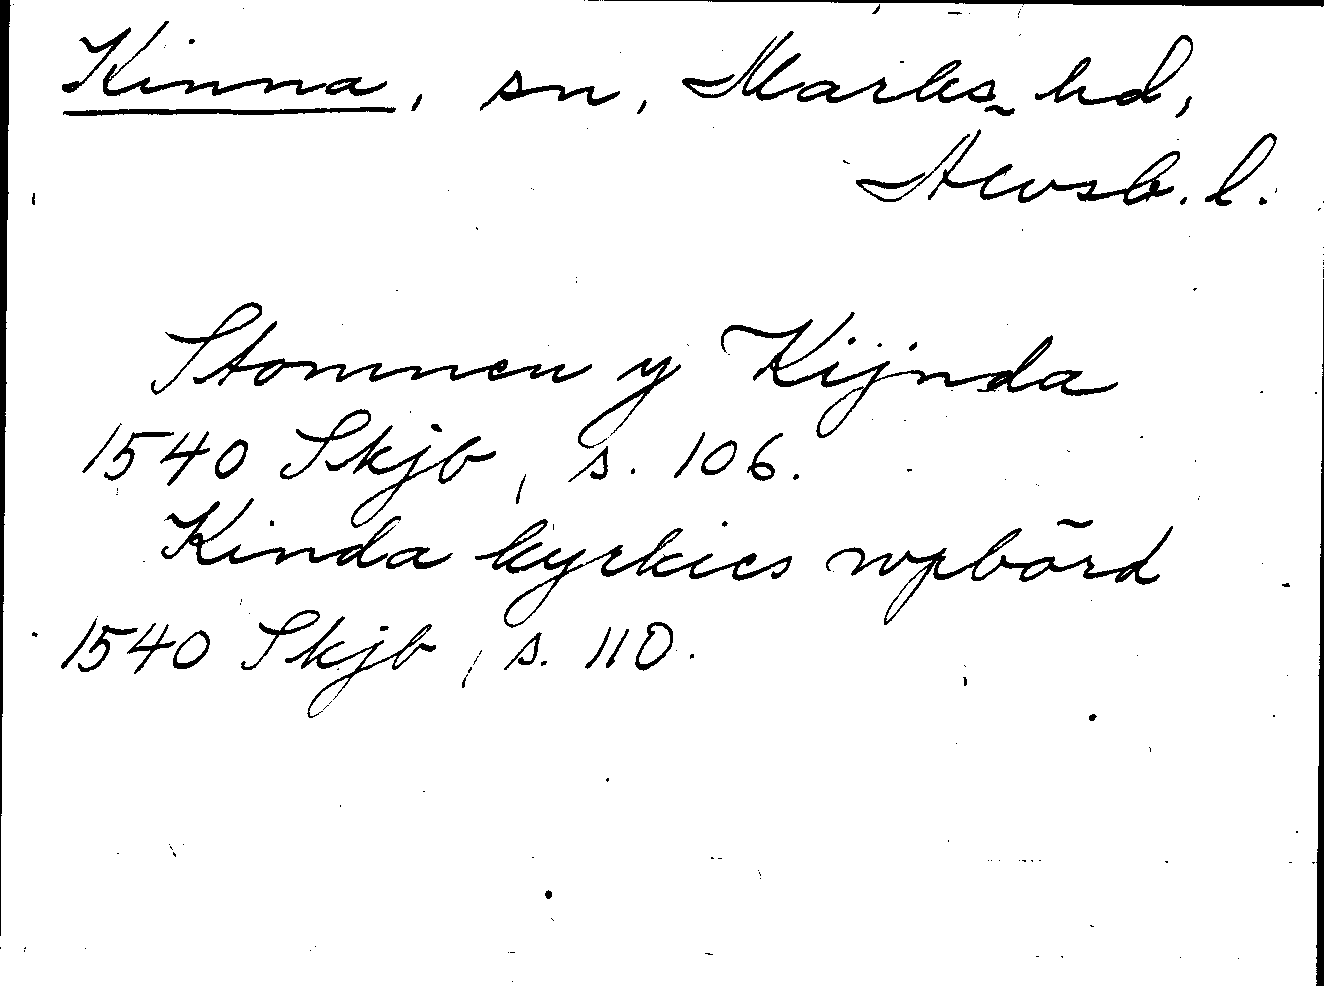 Kinna, sn, Marks hd,
Älvsb. l.
Stommen y Kijnda
1540 Skjb, s. 106.
Kinda kyrkies wpbörd
1540 Skjb, s. 110.